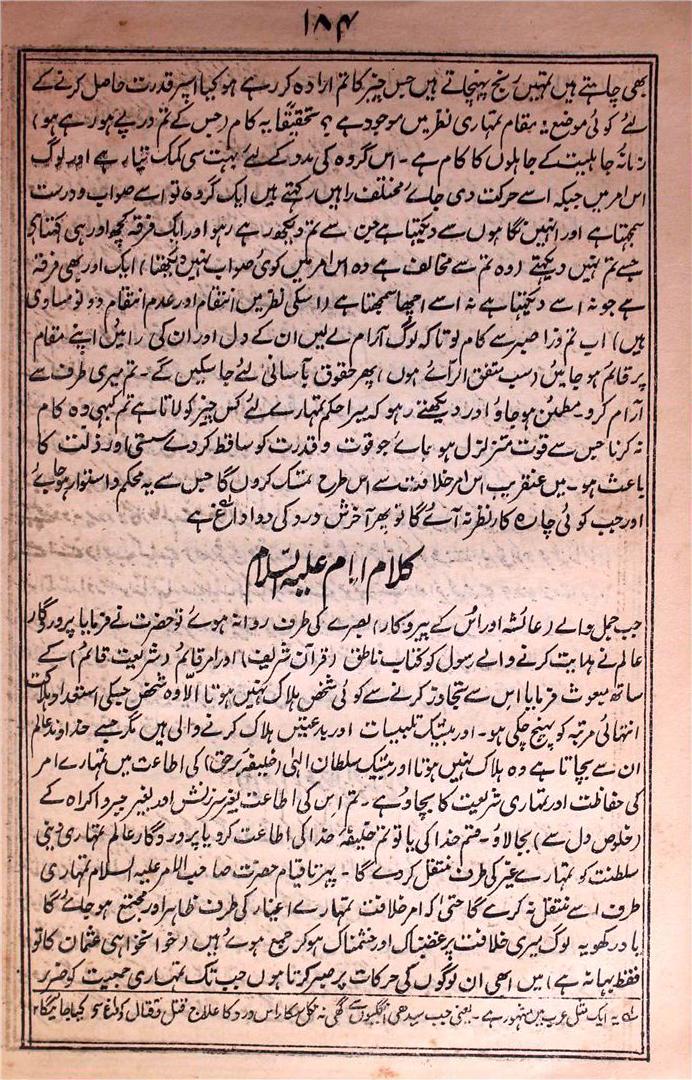 ۱۸۴
بھی چاہتے ہیں تمہیں رنج پہنچاتے ہیں جس چیز کا تم ارادہ کر رہے ہو کیا اسپر قدرت حاصل کرنے کے
لئے کوئی موضع و مقام تمہاری نظر میں موجود ہے؟ تحقیقًا یہ کام (جس کے تم درپے ہو رہے ہو)
زمانۂ جاہلیت کے جاہلوں کا کام ہے۔ اس گروہ کی مدد کے لئے بہت سی کمک تیار ہے اور لوگ
اس امر میں جبکہ اسے حرکت دی جائے مختلف راہیں رکھتے ہیں ایک گروہ تو اسے صواب و درست
سمجھتا ہے اور انہیں نگاہوں سے دیکھتا ہے جن سے تم دیکھ رہے ہو اور ایک فرقہ کچھ اور ہی
جسے تم نہیں دیکھتے (وہ تم سے مخالف ہے وہ اس امر میں کوئی صواب نہیں دیکھتا) ایک اور بھی فرقہ
ہے جو نہ اسے دیکھتا ہے نہ اسے اچھا سمجھتا ہے (اسکی نظر میں انتقام اور عدم انتقام دونو مساوی
ہیں) اب تم ذرا صبر سے کام لو تاکہ لوگ آرام لے لیں ان کے دل اور ان کی رائیں اپنے مقام
پر قائم ہو جائیں (سب متفق الرائے ہوں) پھر حقوق بآسانی لئے جا سکیں گے۔ تم میری طرف سے
آرام کرو۔ مطمئن ہو جاؤ اور دیکھتے رہو کہ میرا حکم تمہارے لئے کس چیز کو لاتا ہے تم کبھی وہ کام
نہ کرنا جس سے قوت متزلزل ہو جائے جو قوت و قدرت کو ساقط کردے سستی اور ذلت کا
باعث ہو۔ میں عنقریب اس امر خلافت سے اس طرح تمسک کروں گا جس سے یہ محکم و استوار ہو جائے
اور جب کوئی چارہ کار نظر نہ آئے گا تو پھر آخرش درد کی دوا داغ ہے
کلام امام علیہ السلام
جب جمل والے (عائشہ اور اس کے پیروکار) بصرے کی طرف روانہ ہوئے تو حضرت نے فرمایا پروردگار
عالم نے ہدایت کرنے والے رسول کو کتاب ناطق (قرآن شریف) اور امر قائم (شریعت قائم) کے
ساتھ مبعوث فرمایا اس سے تجاوز کرنے سے کوئی شخص ہلاک نہیں ہوتا الّا وہ شخص جسکی استعداد ہلاکت
انتہائی مرتبہ کو پہنچ چکی ہو۔ اور بیشک تلبیسات اور بدعتیں ہلاک کرنے والی ہیں مگر جسے خداوند عالم
ان سے بچاتا ہے وہ ہلاک نہیں ہوتا اور بیشک سلطان الٰہی (خلیفہ برحق) کی اطاعت میں تمہارے امر
کی حفاظت اور تمہاری شریعت کا بچاؤ ہے۔ تم اس کی اطاعت بغیر سرزنش اور بغیر جبر و اکراہ کے
(خلوص دل سے) بجالاؤ۔ قسم خدا کی یا تو تم خلیفۂ خدا کی اطاعت کرو یا پروردگار عالم تمہاری دینی
سلطنت کو تمہارے غیر کی طرف منتقل کردے گا۔ پھر تا قیام حضرت صاحب الامر علیہ السلام تمہاری
طرف اسے منتقل نہ کرے گا حتیٰ کہ امر خلافت تمہارے اغیار کی طرف ظاہر اور مجتمع ہو جائے گا
یاد رکھو یہ لوگ میری خلافت پر غضبناک اور خشمناک ہو کر جمع ہوئے ہیں (خوانخواہی عثمان کا تو
فقط بہانہ ہے) میں ابھی ان لوگوں کی حرکات پر صبر کرتا ہوں جب تک تمہاری جمعیت کو ضرر
یہ ایک مثل عرب میں مشہور ہے۔ یعنی جب سیدھی انگلیوں سے گھی نہ نکل سکا اس درد کا علاج قتل و قتال کو داغ سے کیا جائیگا ۱۲